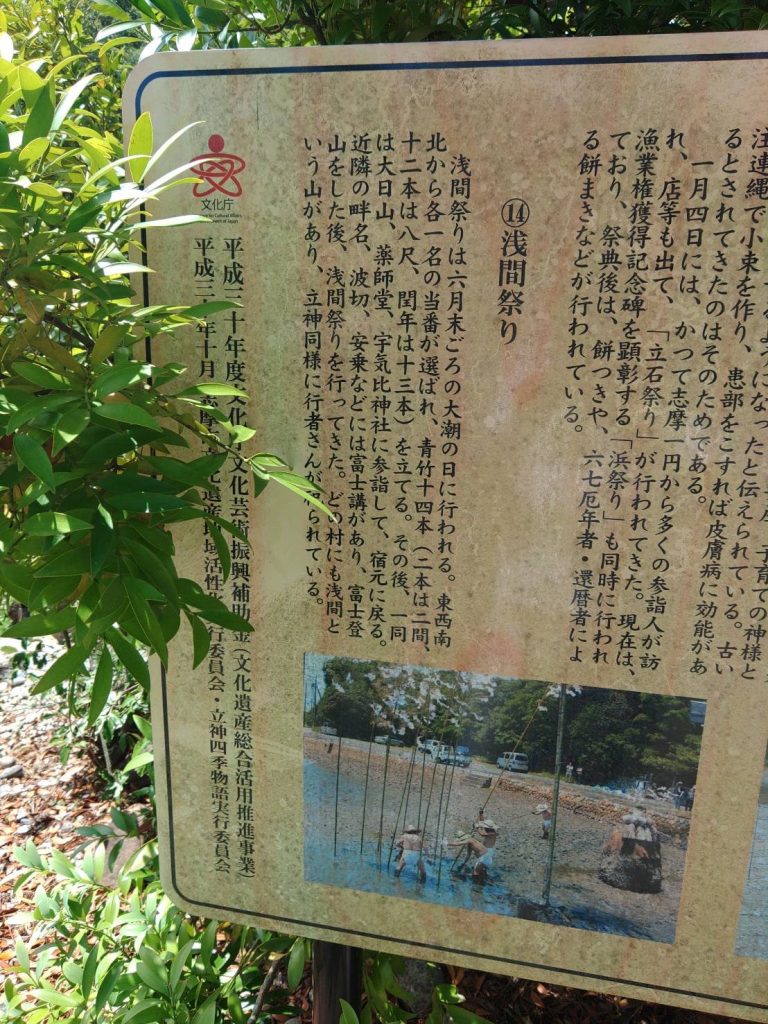 注連縄で小束を作り、患部をこすれば皮膚病に効能があ
るとされてきたのはそのためである。
一月四日には、かつて志摩一円から多くの参詣人が訪
れ、店等も出て、「立石祭り」が行われてきた。現在は、
漁業権獲得記念碑を顕彰する「浜祭り」も同時に行われ
ており、祭典後は、餅つきや、六七厄年者・還暦者によ
る餅まきなどが行われている。
⑭浅間祭り
浅間祭りは六月末ごろの大潮の日に行われる。東西南
北から各一名の当番が選ばれ、青竹十四本(二本は二間、
十二本は八尺、閏年は十三本)を立てる。その後、一同
は大日山、薬師堂、宇気比神社に参詣して、宿元に戻る。
近隣の畔名、波切、安乗などには富士講があり、富士登
山をした後、浅間祭りを行ってきた。どの村にも浅間と
いう山があり、立神同様に行者さんが祀られている。
文化庁
平成三十年度 文化庁文化芸術振興補助金(文化遺産総合活用推進事業)
平成三 年十月 志摩 文化遺産地域活性化 行委員会・立神四季物語実行委員会